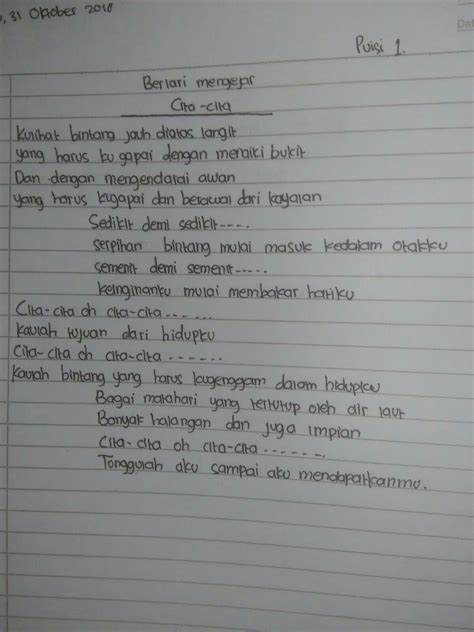 , 31 Oktober 2018
Puisi 1.
Berlari mengejar
Cita-cita
Kulihat bintang jauh diatas langit
yang harus ku gapai dengan menaiki bukit
Dan dengan mengendarai awan
yang harus kugapai dan berawal dari kayalan
Sedikit demi sedikit----.
serpihan bintang mulai masuk kedalam otakku
semenit demi semenit-----.
keinginanku mulai membakar hatiku
Cita-cita oh cita-cita......
kaulah tujuan dari hidupku
Cita-cita oh cita-cita......
kaulah bintang yang harus kugenggam dalam hidupku
Bagai matahari yang tertutup oleh air laut
Banyak halangan dan juga impian
Cita-cita oh cita-cita.......
Tunggulah aku sampai aku mendapatkanmu.